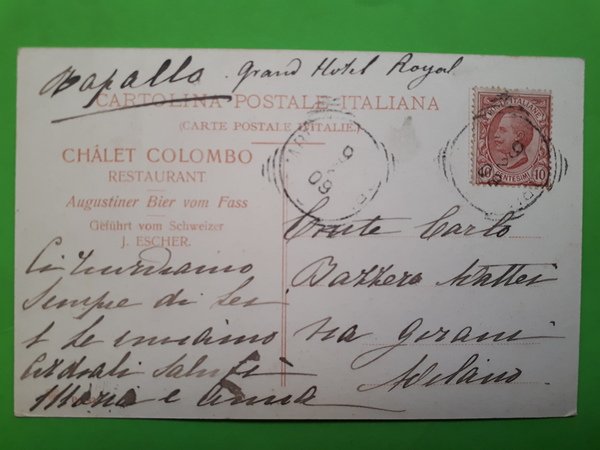 Rapallo. Grand Hotel Royal
CARTOLINA POSTALE ITALIANA
(CARTE POSTALE D'ITALIE)
CHÂLET COLOMBO
RESTAURANT
Augustiner Bier vom Fass
Geführt vom Schweizer
J. ESCHER.
Ci ricordiamo
sempre di Lei
e Le inviamo
cordiali saluti
Maria e Anna
Conte Carlo
Bazzero Mattei
Via Gesani
Milano
09
CENTESIMI 10